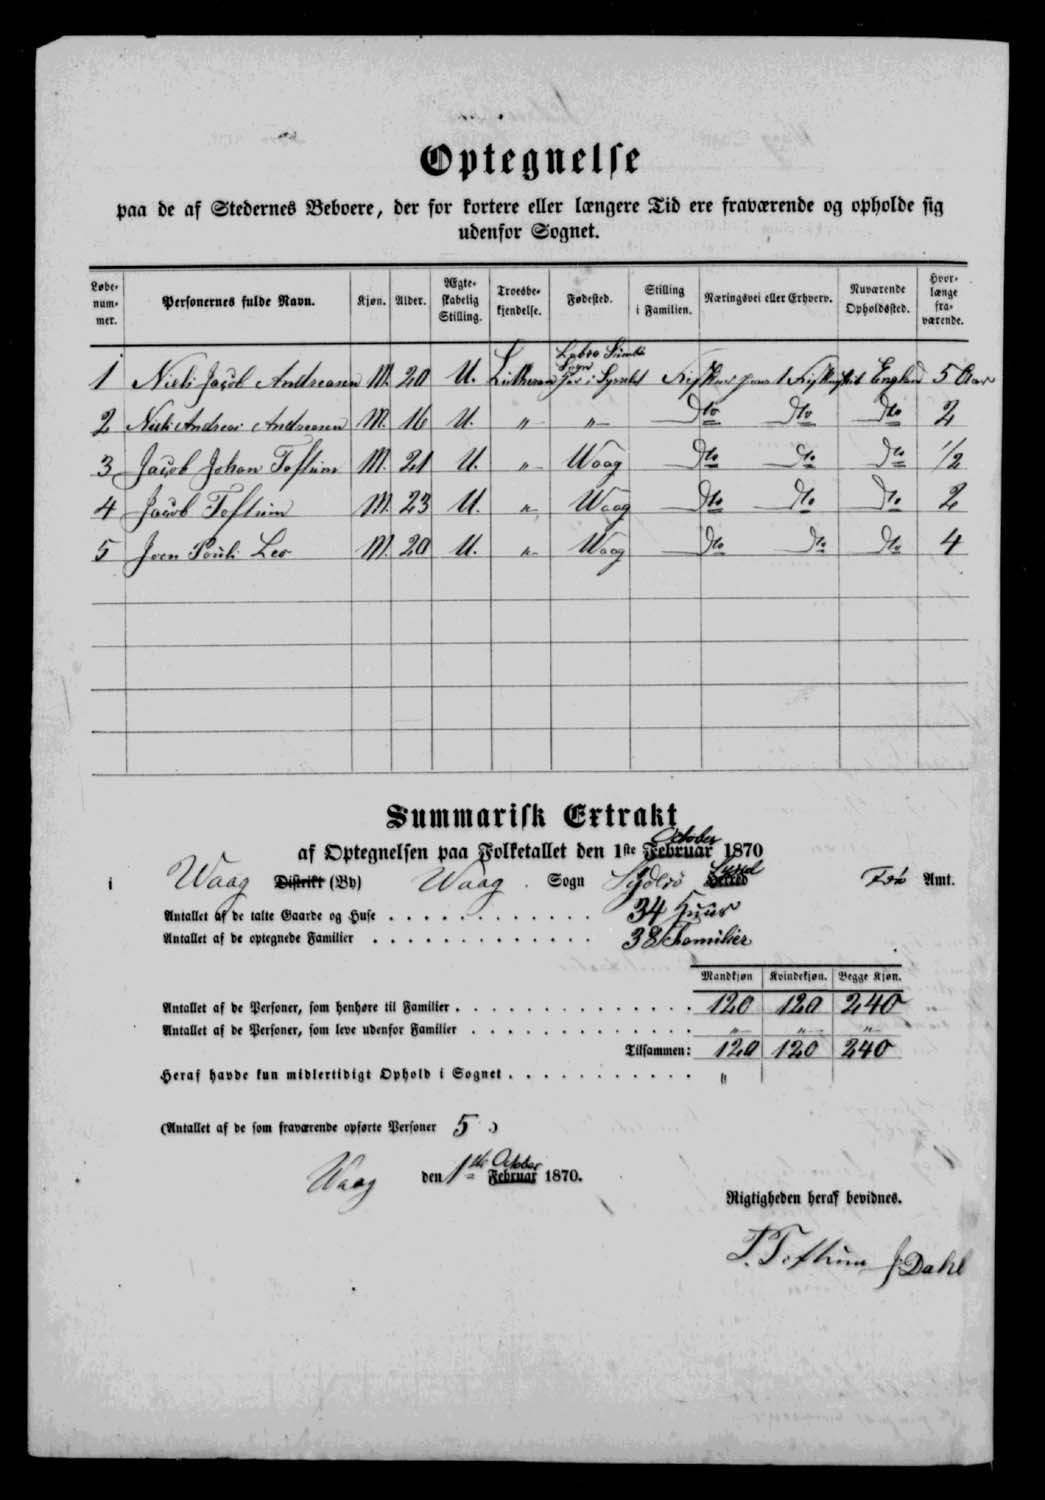 Optegnelse
paa de af Stedernes Beboere, der for kortere eller længere Tid ere fraværende og opholde sig
udenfor Sognet.
Løbe-nummer. Personernes fulde Navn. Kjøn. Alder. Ægteskabelig Stilling. Troesbekjendelse. Fødested. Stilling i Familien. Næringsvei eller Erhverv. Nuværende Opholdssted. Hvorlænge fraværende.
1 Niels Jacob Andreasen M. 20 U. Lutheran England 5 Aar
2 Niels Andreas Andreasen M. 16 U. " " Do Do Do 2
3 Jacob Johan Toftum M. 21 U. " Waag Do Do Do 1/2
4 Jacob Toftum M. 23 U. " Waag Do Do Do 2
5 Joen Pouli Leo M. 20 U. " Waag Do Do Do 4
Summarisk Extrakt
October
af Optegnelsen paa Folketallet den 1ste Februar 1870
i Waag Distrikt (By) Waag Sogn Syderø Syssel Herred Amt.
Antallet af de talte Gaarde og Huse 34 Huus
Antallet af de optegnede Familier 38 Familier
Mandkjøn Kvindekjøn. Begge Kjøn.
Antallet af de Personer, som henhøre til Familier 120 120 240
Antallet af de Personer, som leve udenfor Familier " " "
Tilsammen: 120 120 240
Heraf havde kun midlertidigt Ophold i Sognet "
(Antallet af de som fraværende opførte Personer 5 )
October
Waag den 1ste Februar 1870.
Rigtigheden heraf bevidnes.
P. Toftum J. Dahl